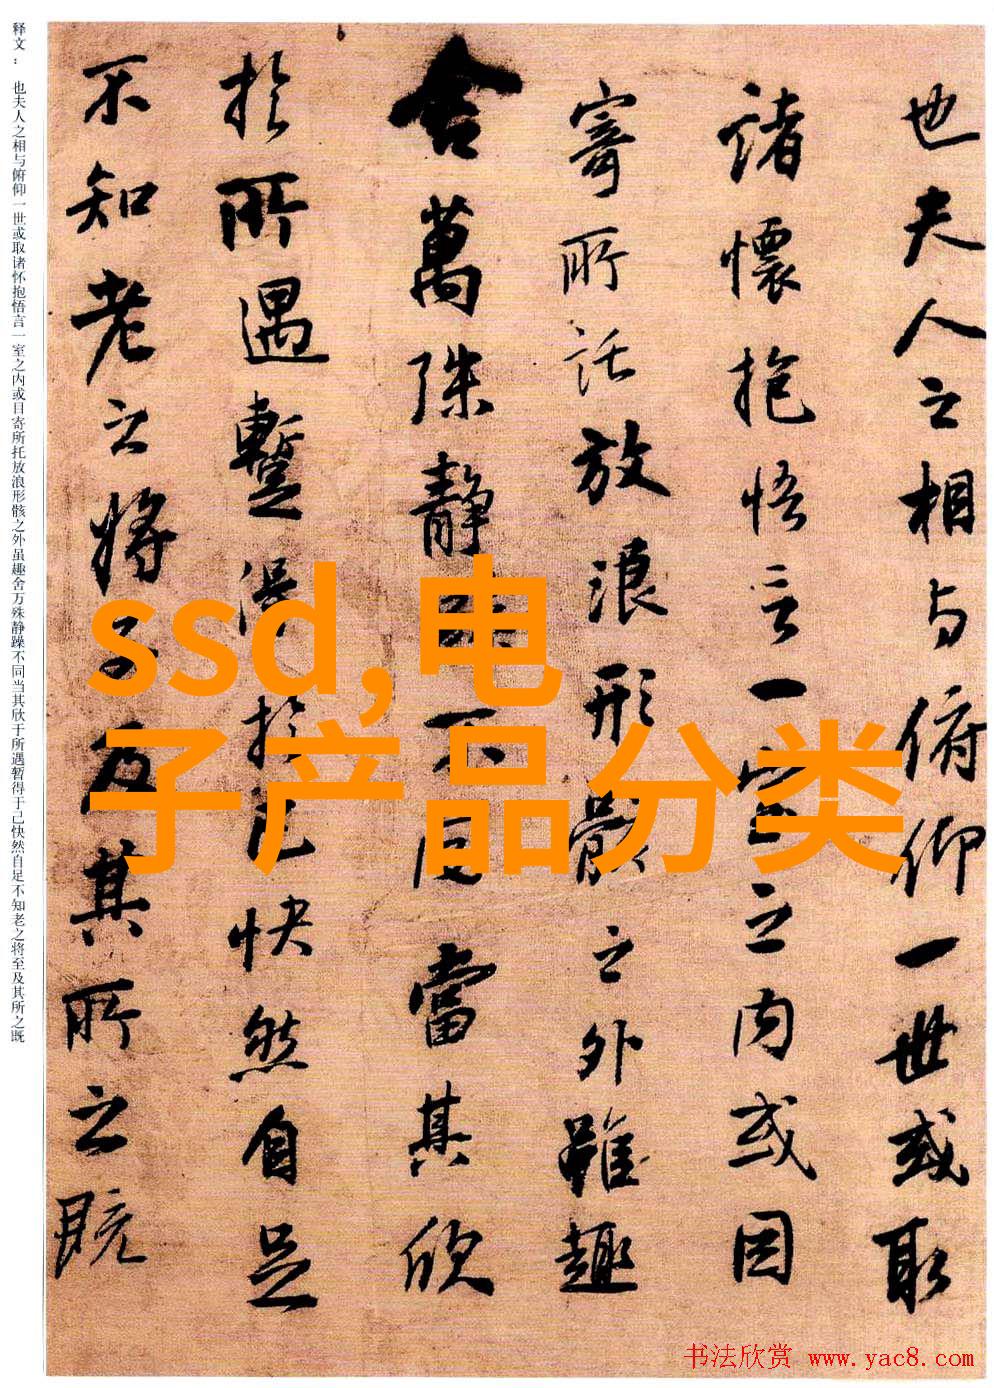 也夫人之相与俯仰一世或取
諸懷抱悟言一室之内或因
寄所託放浪形骸之外雖趣
舍萬殊靜躁不同當其欣
於所遇蹔得於己快然自足
不知老之將至及其所之既
释文： 也夫人之相与俯仰一世或取诸怀抱悟言一室之内或目寄所托放浪形骸之外虽趣舍万殊静躁不同当其欣于所遇暂得于己快然自足不知老之将至及其所之既
ssd,电
子产品分类
书法欣赏 www.yac8.com